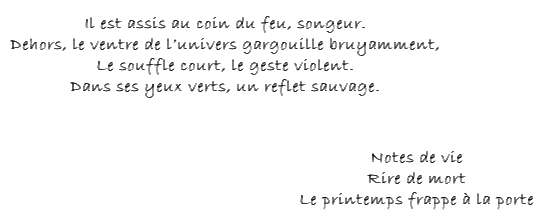 Il est assis au coin du feu, songeur.
Dehors, le ventre de l'univers gargouille bruyamment,
Le souffle court, le geste violent.
Dans ses yeux verts, un reflet sauvage.
Notes de vie
Rire de mort
Le printemps frappe à la porte